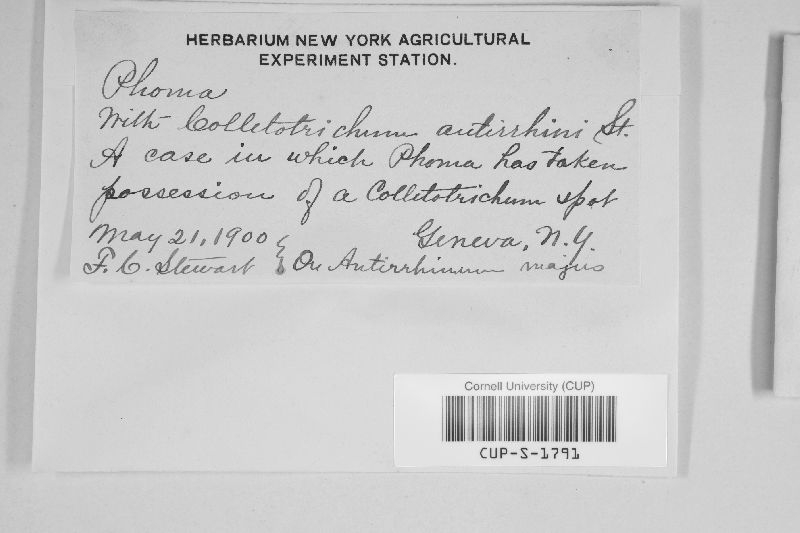 HERBARIUM NEW YORK AGRICULTURAL
EXPERIMENT STATION.
Phoma
With Colletotrichum antirrhini St.
A case in which Phoma has taken
possession of a Colletotrichum spot
May 21, 1900 Geneva, N.Y.
F. C. Stewart } On Antirrhinum majus
Cornell University (CUP)
CUP-S-1791